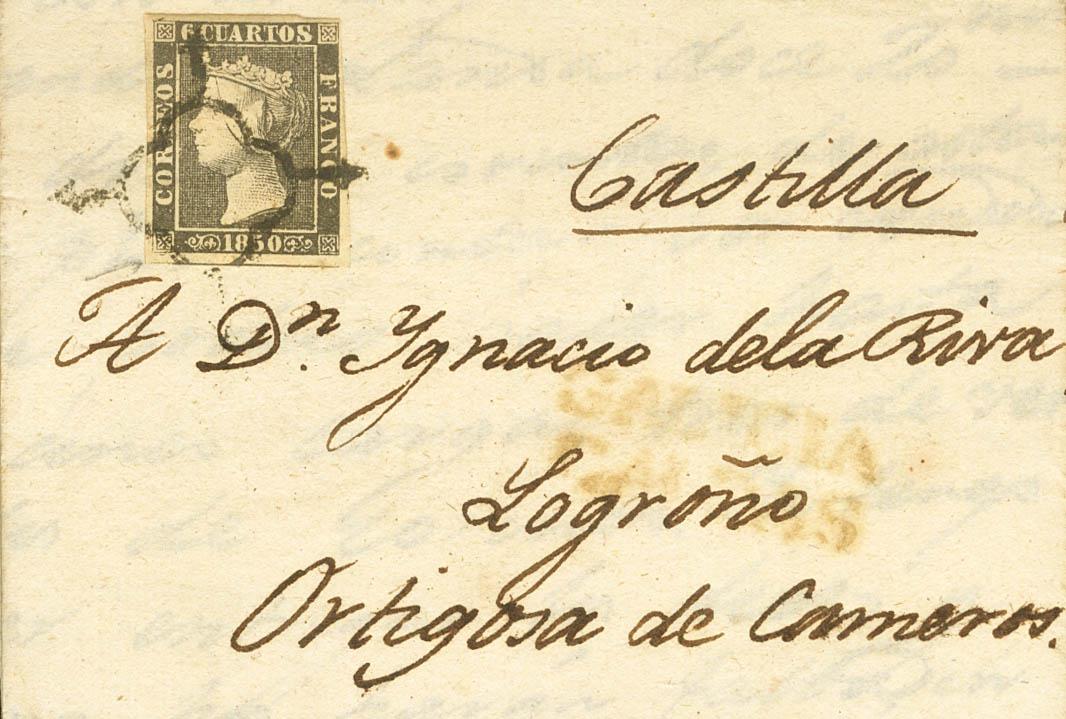 6 CUARTOS
CORREOS
FRANCO
1850
Castilla
A Dn. Ygnacio dela Riva
Logroño
Ortigosa de Cameros.